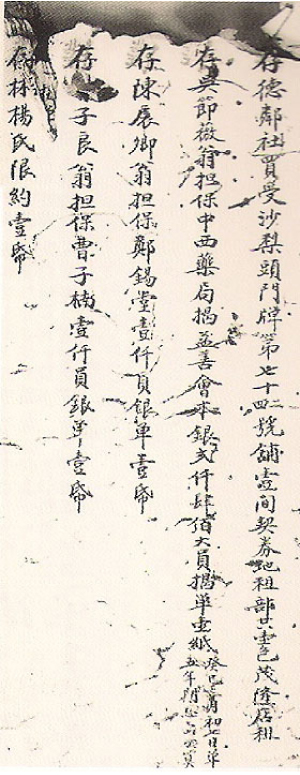 存德鄰社買受沙梨頭門牌第七十四號舖壹間契券地租部共壹包茂隆店租
存吳節薇翁担保中西藥局揭益善會本銀弍仟肆佰大員揭单壹紙癸巳 月初七日单
五年期
存陳展卿翁担保鄭錫堂壹仟員銀单壹帋
存 子良翁担保曹子 壹仟員銀单壹帋
存林楊氏限約壹帋